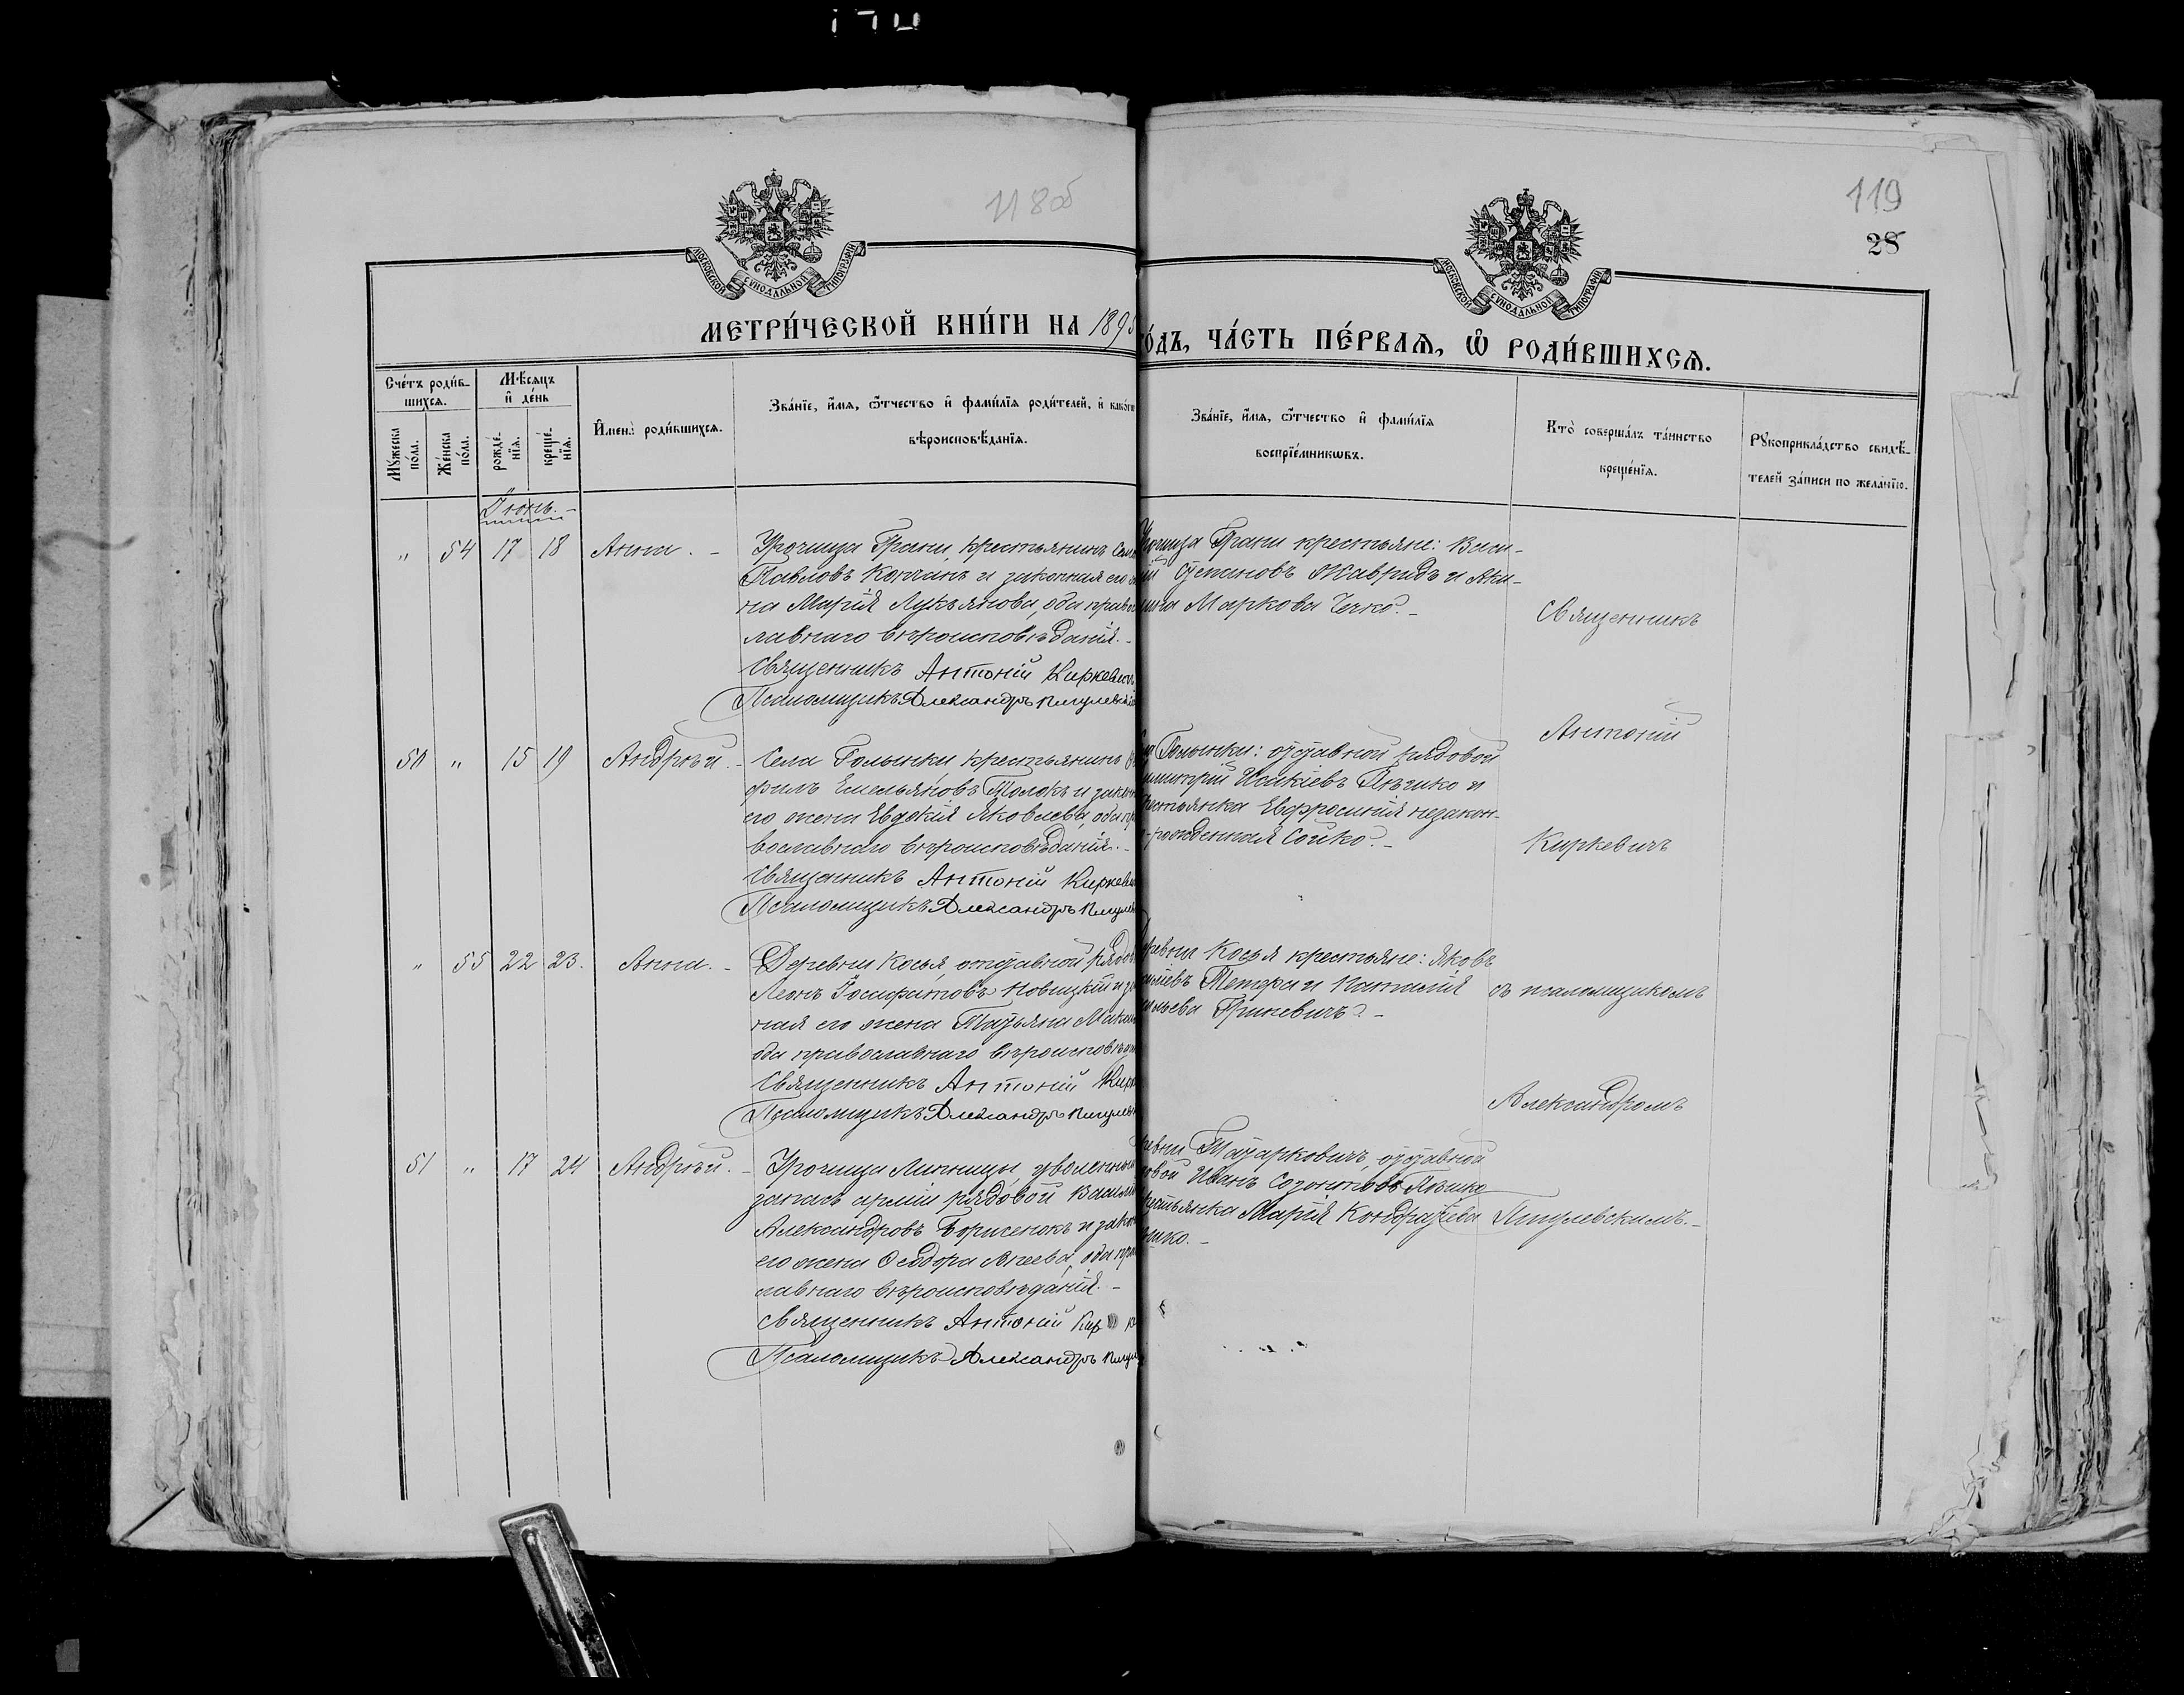 118 об
119
28
МОСКОВСКОЙ СѴНОДАЛЬНОЙ ТИПОГРАФІИ
МОСКОВСКОЙ СѴНОДАЛЬНОЙ ТИПОГРАФІИ
МЕТРИ́ЧЕСКОЙ КНИ́ГИ НА 1895
ГО́ДЪ, ЧА́СТЬ ПЕ́РВАѦ, Ѡ҆ РОДИ́ВШИХСѦ.
Сче́тъ роди́в-
шихсѧ.
Мꙋ́жеска по́ла.
Же́нска по́ла.
Мѣ́сѧцъ
и҆ де́нь
рожде́-нїѧ.
креще́-нїѧ.
И҆мена̀ роди́вшихсѧ.
Зва́нїе, и҆́мѧ, ѻ҆́тчество и҆ фами́лїѧ роди́телей, и҆ како́гѡ
вѣроисповѣ́данїѧ.
Зва́нїе, и҆́мѧ, ѻ҆́тчество и҆ фами́лїѧ
воспрїе́мникѡвъ.
Кто̀ соверша́лъ та́инство
креще́нїѧ.
Рꙋкоприкла́дство свидѣ́-
телей за́писи по жела́нїю.
Іюнь. -
" 54 17 18 Анна. - Урочища Грани, крестьянинъ
Павловъ Копчикъ и законная его
на Марія Лукьянова, оба право
славнаго вѣроисповѣданія. -
Священникъ Антоній Киркевичъ
Псаломщикъ Александръ Пигулевскій
Урочища Грани крестьяне: Васи-
лій Степановъ Жавридъ и Аки-
лина Маркова Чечко. -
Священникъ
50 " 15 19 Андрей. - Села Голынки, крестьянинъ
филъ Емельяновъ Толокъ и закон
его жена Евдокія Яковлева, оба пр
вославнаго вѣроисповѣданія. -
Священникъ Антоній Киркеви
Псаломщикъ Александръ Пигулев
Голынки: отставной рядовой
Димитрій Исакіевъ и
крестьянка Евфросинія незакон-
рожденная Сойко. -
Антоній
Киркевичъ
" 55 22 23. Анна. - Деревни Косья, отставной рядов
Леонъ Іосафатовъ Новицкій и за
ная его жена Татьяна
оба православнаго вѣроисповѣд
Священникъ Антоній Кирк
Псаломщикъ Александръ Пигулев
деревни Косья крестьяне: Яковъ
Тетера и Наталія
Гриневичъ. -
съ псаломщикомъ
Александромъ
51 " 17 24 Андрей. - Урочища Липницы, уволенный
запасъ арміи рядовой Василій
Александровъ Борисенокъ и закон
его жена Ѳеодора Агеева, оба пра
славнаго вѣроисповѣданія. -
Священникъ Антоній Кир
Псаломщикъ Александръ Пигул
отставной
рядовой Иванъ Созонтовъ
крестьянка Марія Кондратьева
Пигулевскимъ. -